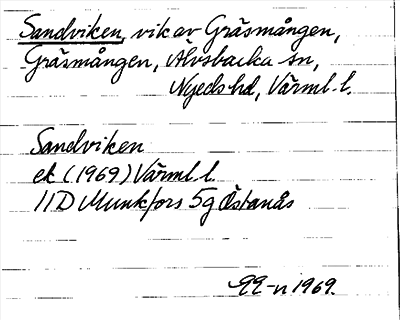 Sandviken, vik av Gräsmången,
Gräsmången, Älvsbacka sn,
Nyeds hd, Värml. l.
Sandviken
ek (1969) Värml. l.
11D Munkfors 5g Östanås
1969.